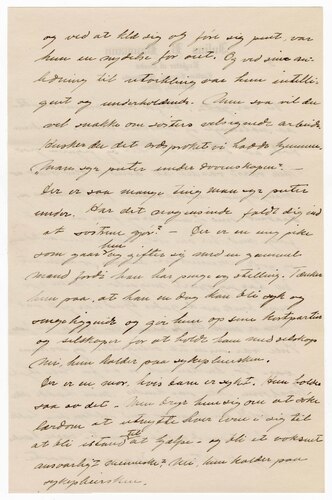 og ved at klæ sig og føre sig pent, var
hun en nydelse for øiet. Og ved sine an-
ledning til utvikling var hun intelli-
gent og underholdende. Men saa vil du
vel snakke om søsters velsignede arbeide.
Husker du det ordsproket vi hadde hjemme,
"Man syr puter under dovenskapen". –
Der er saa mange ting man syr puter
under. Har det nogensinde faldt dig ind
at søstrene gjør? – Der er en ung pike
som gaar hen og gifter sig med en gammel
mand fordi han har penge og stilling. Tænker
hun paa, at han en dag kan bli syk og
omgjængelig og gir hun op sine kortpartier
og selskaper for at holde ham med selskap
Nei, hun holder paa sykepleiersken.
Der er en mor, hvis barn er sykt. Hun holder
saa av det. – Men bryr hun sig om at erke
lærdom at utnytte hver evne i sig til
at bli istand til at hjælpe – og bli et voksent
ansvarlig menneske? Nei, hun holder paa
sykepleiersken.